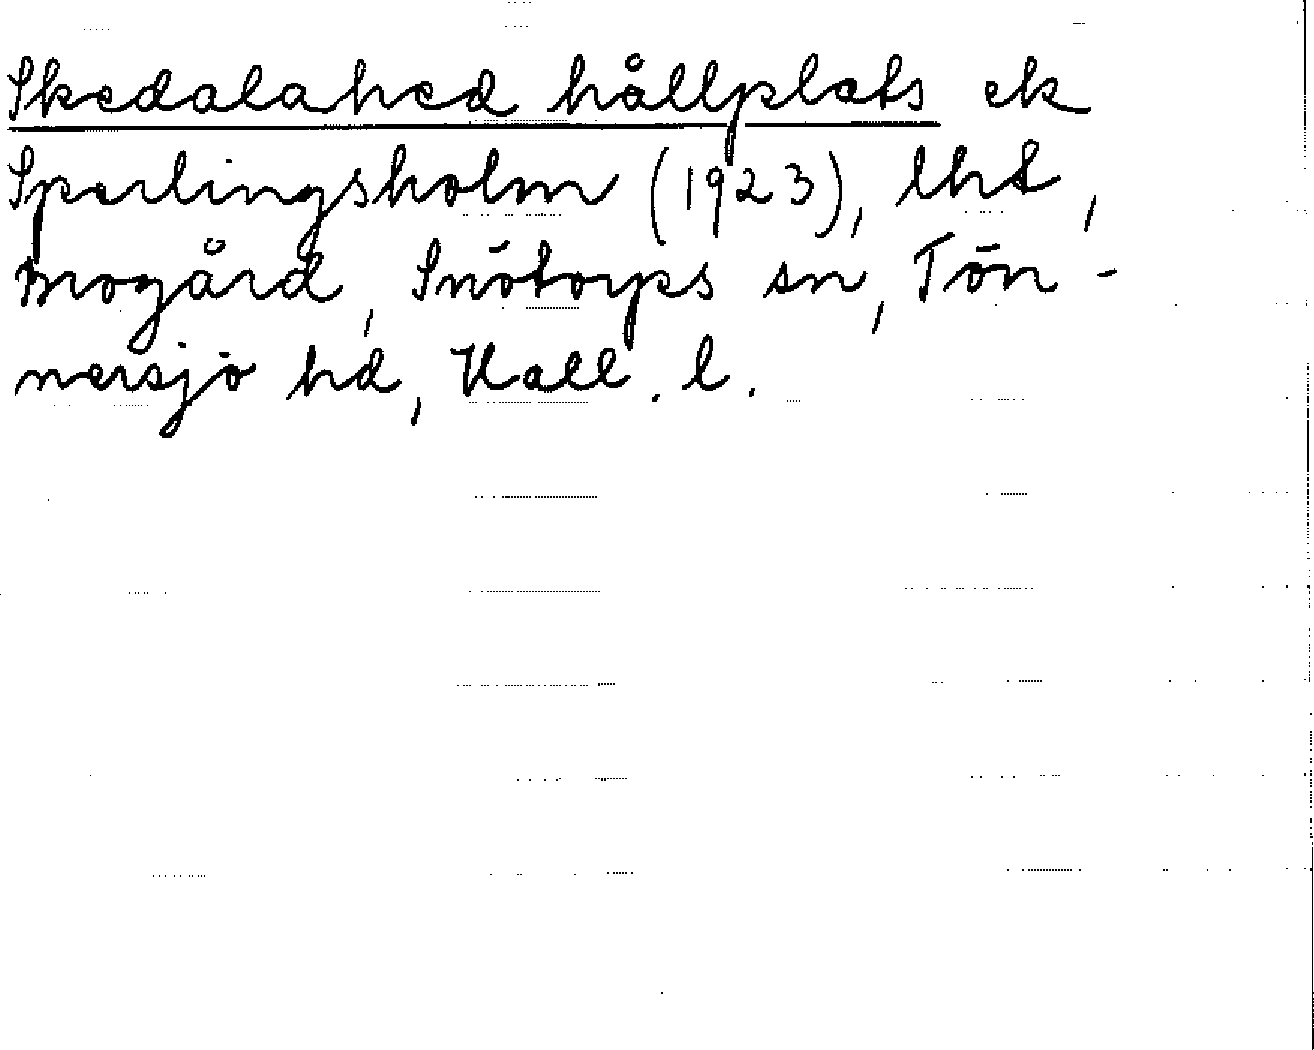 Skedalahed hållplats ek
Sperlingsholm (1923), lht,
Brogård, Snötorps sn, Tön-
nersjö hd, Hall. l.